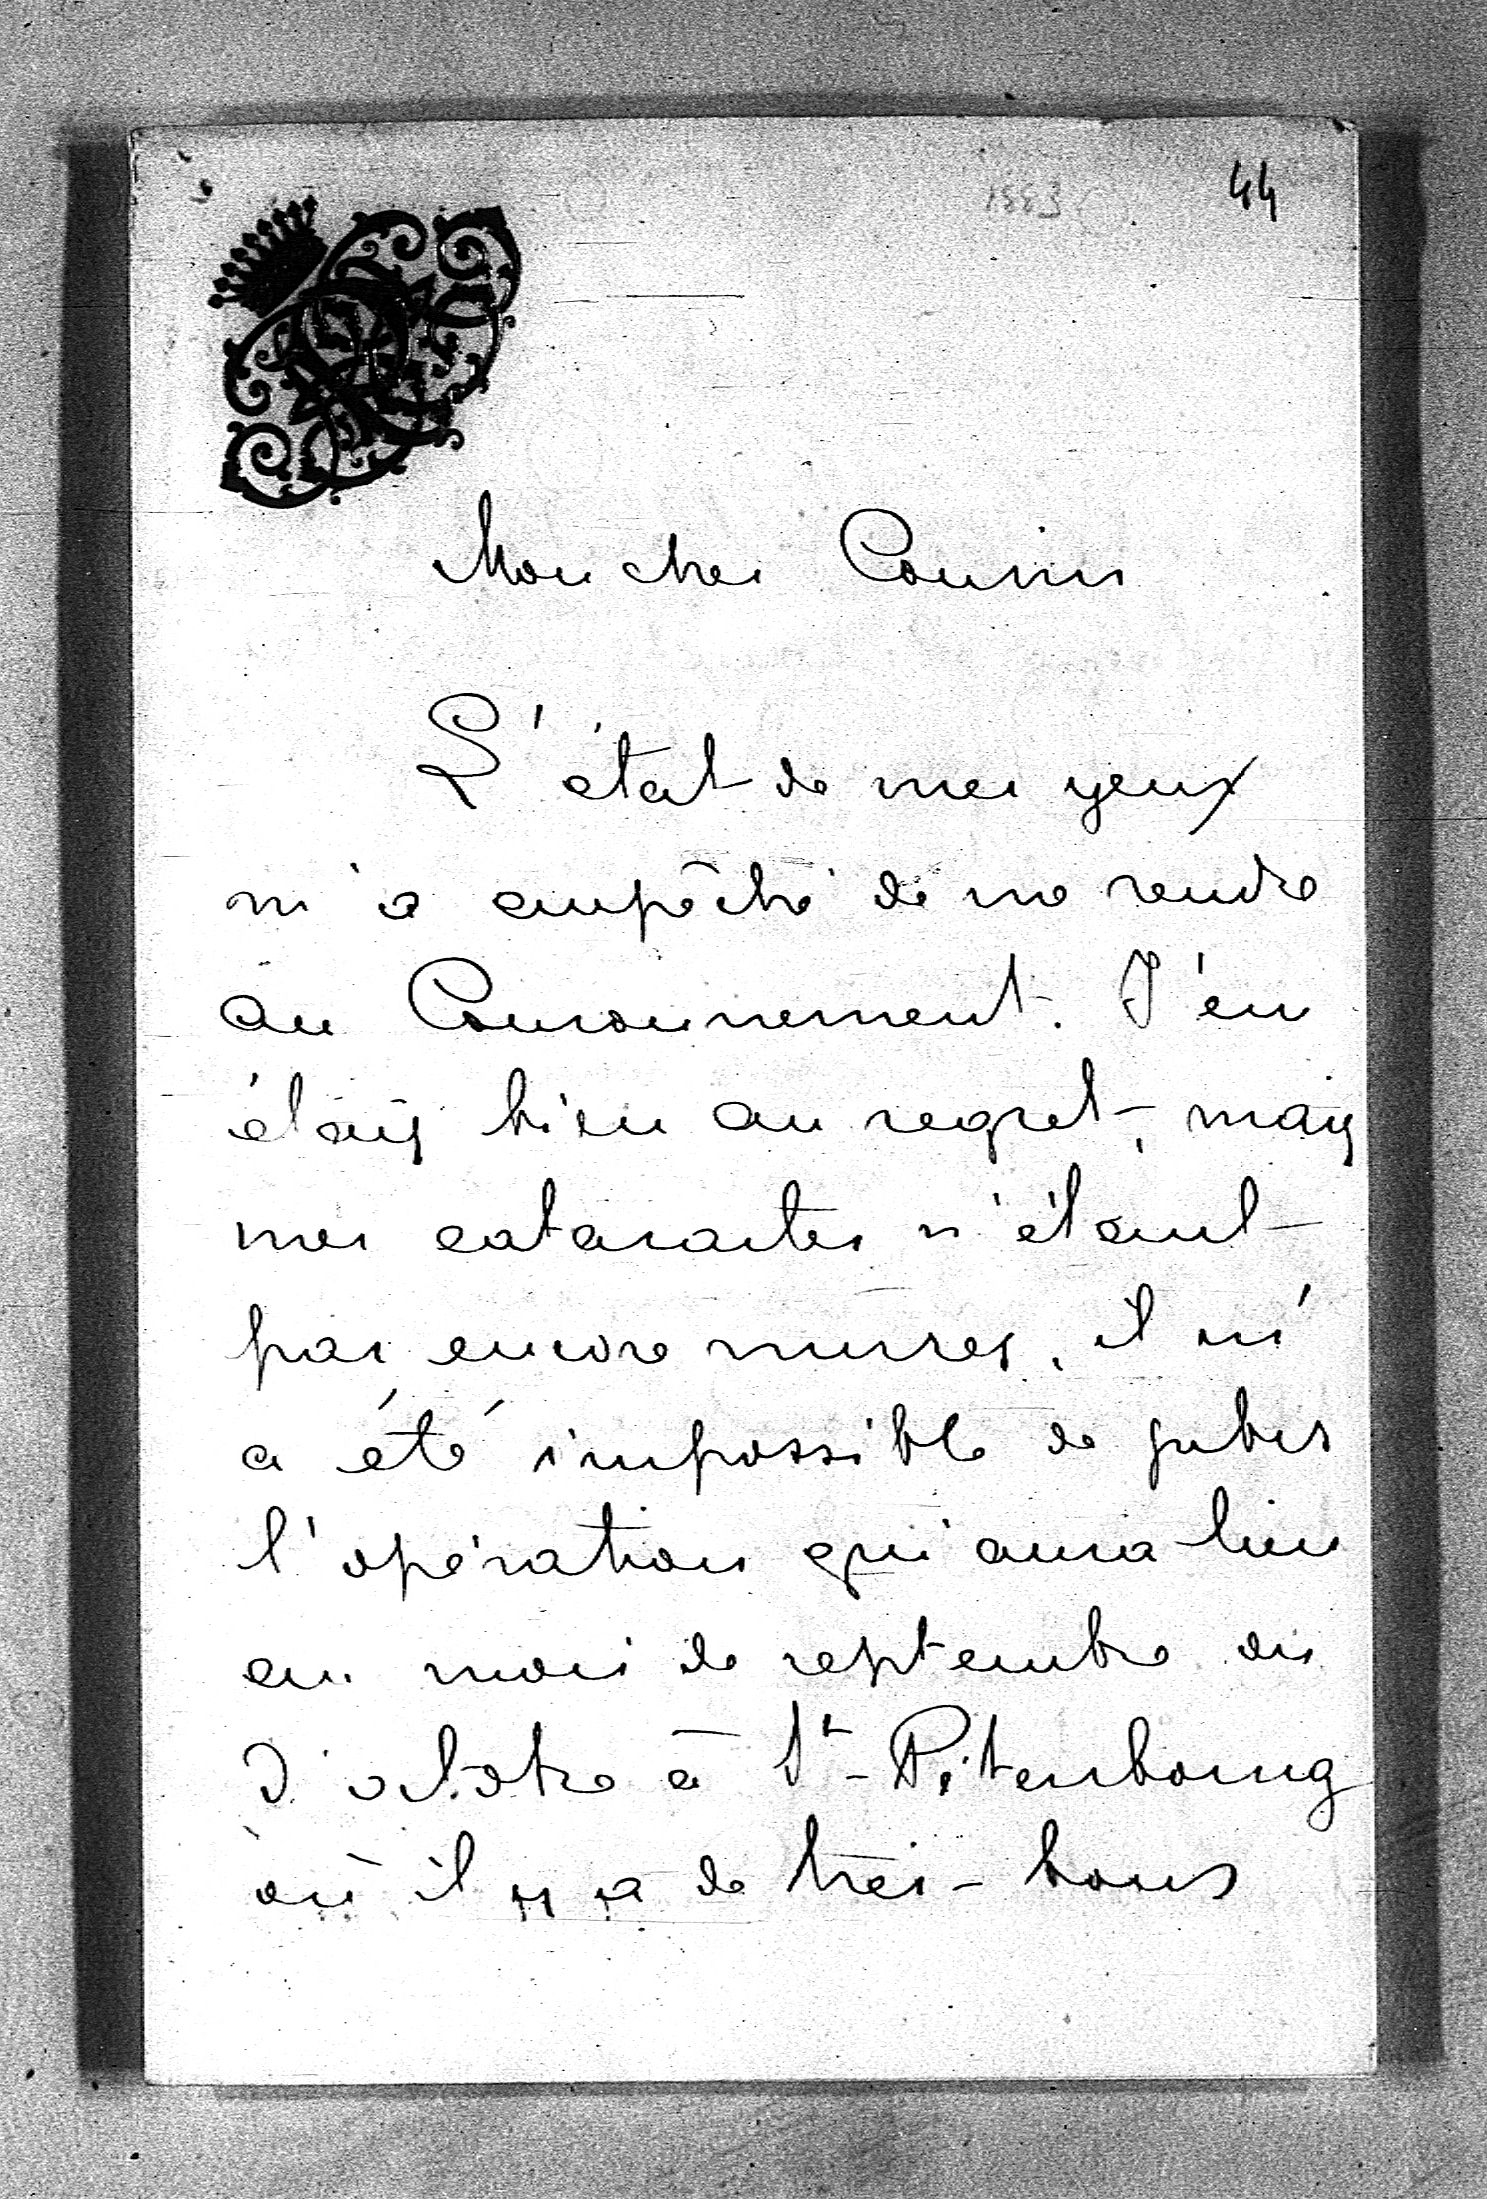 1883
44
Mon cher Cousin
L'état de mes yeux
m'a empêché de me rendre
au Couronnement. J'en
étais bien au regret, mais
mes cataractes n'étant
pas encore mures, il m'
a été impossible de subir
l'opération qui aura lieu
au mois de septembre ou
d'octobre à St-Pétersbourg
où il y a de très-bons